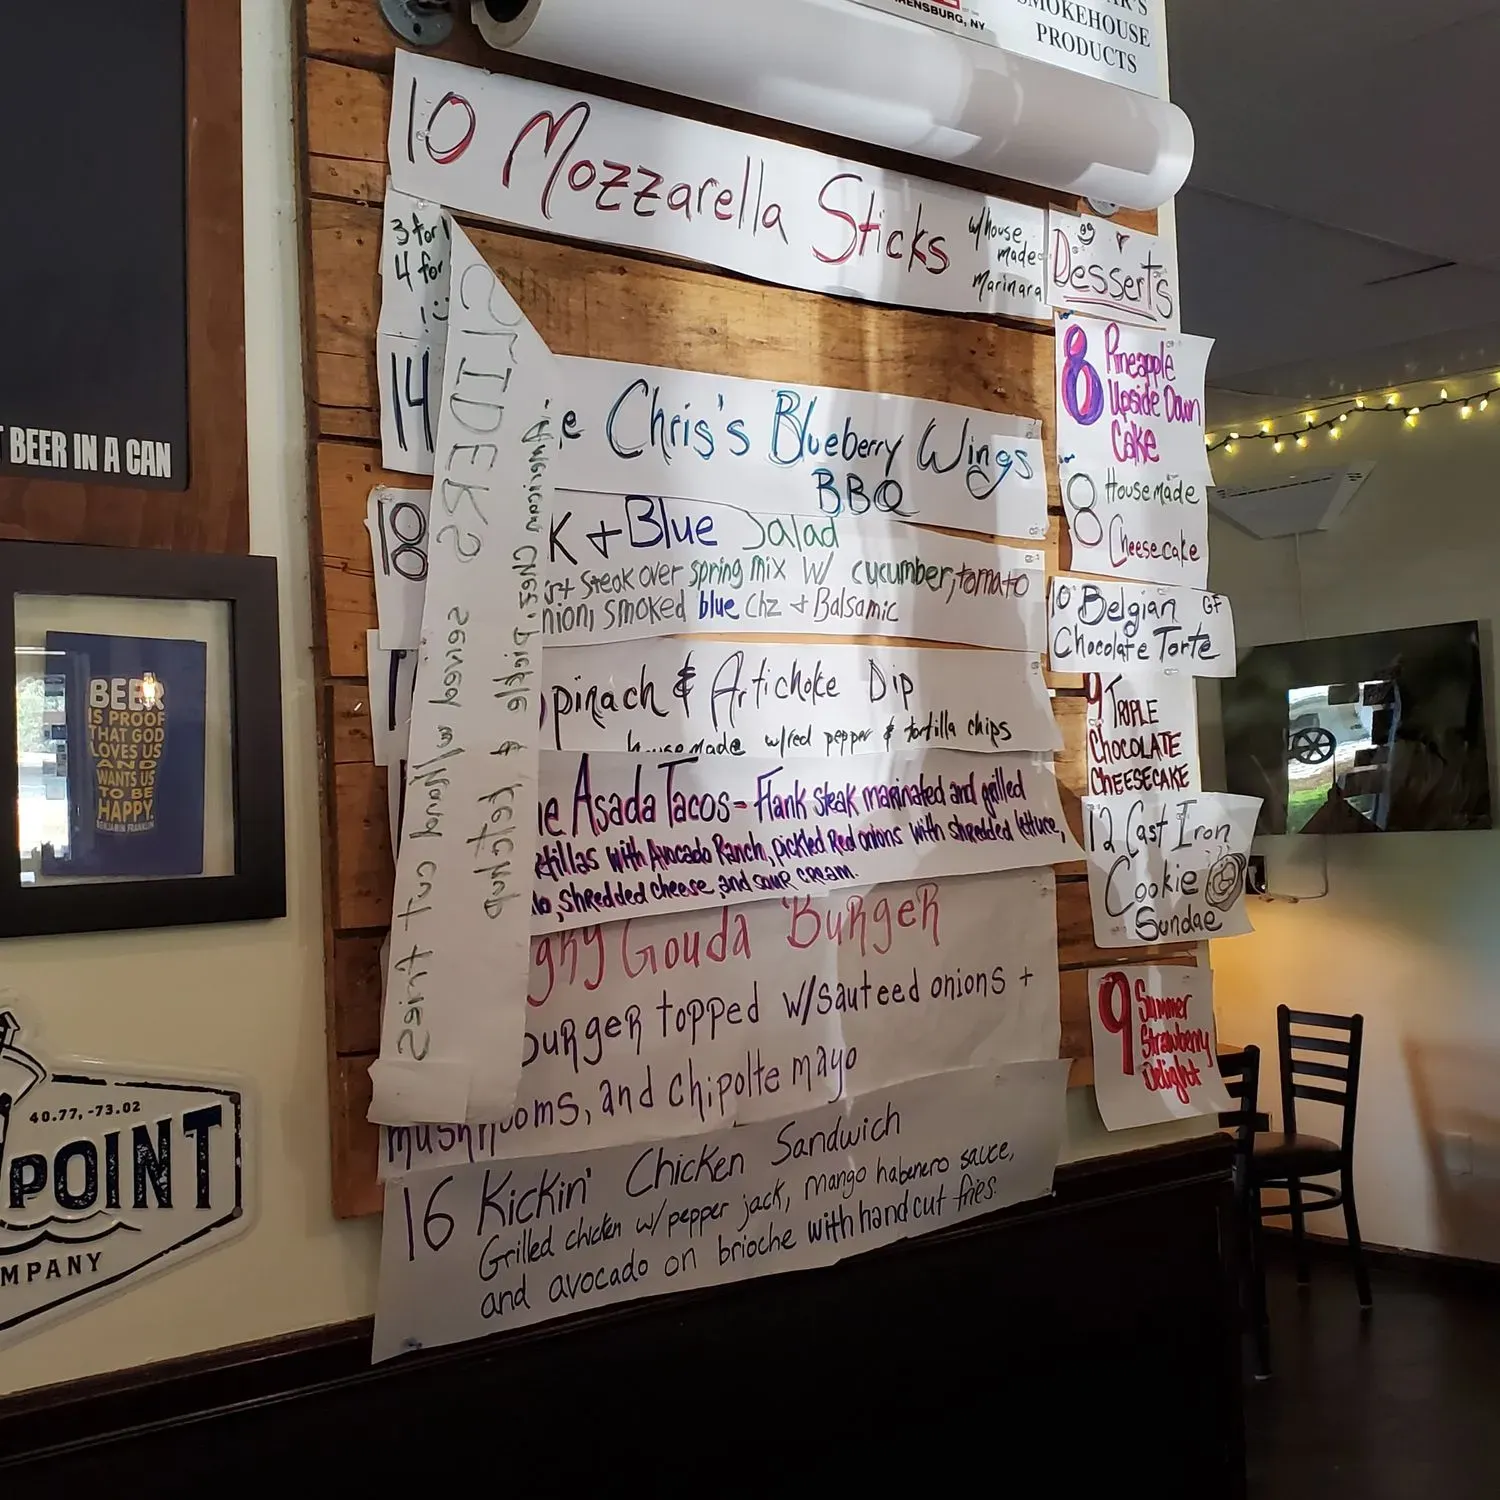 RENSBURG, NY
SMOKEHOUSE
PRODUCTS
10 Mozzarella Sticks w/house
made
Marinara
3 for
4 for
14
e Chris's Blueberry Wings
BBQ
18
K + Blue Salad
steak over spring mix w/ cucumber, tomato
nion, smoked blue chz + Balsamic
pinach & Artichoke Dip
housemade w/red pepper & tortilla chips
ne Asada Tacos - Flank steak marinated and grilled
rtillas with Avocado Ranch, pickled Red onions with shredded lettuce,
shredded cheese, and sour cream.
gry Gouda Burger
burger topped w/sauteed onions +
mushrooms, and chipolte mayo
16 Kickin' Chicken Sandwich
Grilled chicken w/pepper jack, mango habenero sauce,
and avocado on brioche with hand cut fries.
SLIDERS
American Chz, pickle & ketchup
served w/Hand cut fries
Desserts
8 Pineapple
Upside Down
Cake
8 Housemade
Cheesecake
10 Belgian GF
Chocolate Torte
9 TRIPLE
CHOCOLATE
CHEESECAKE
12 Cast Iron
Cookie
Sundae
9 Summer
Strawberry
Delight
BEER IN A CAN
BEER
IS PROOF
THAT GOD
LOVES US
AND
WANTS US
TO BE
HAPPY.
BENJAMIN FRANKLIN
40.77, -73.02
POINT
MPANY